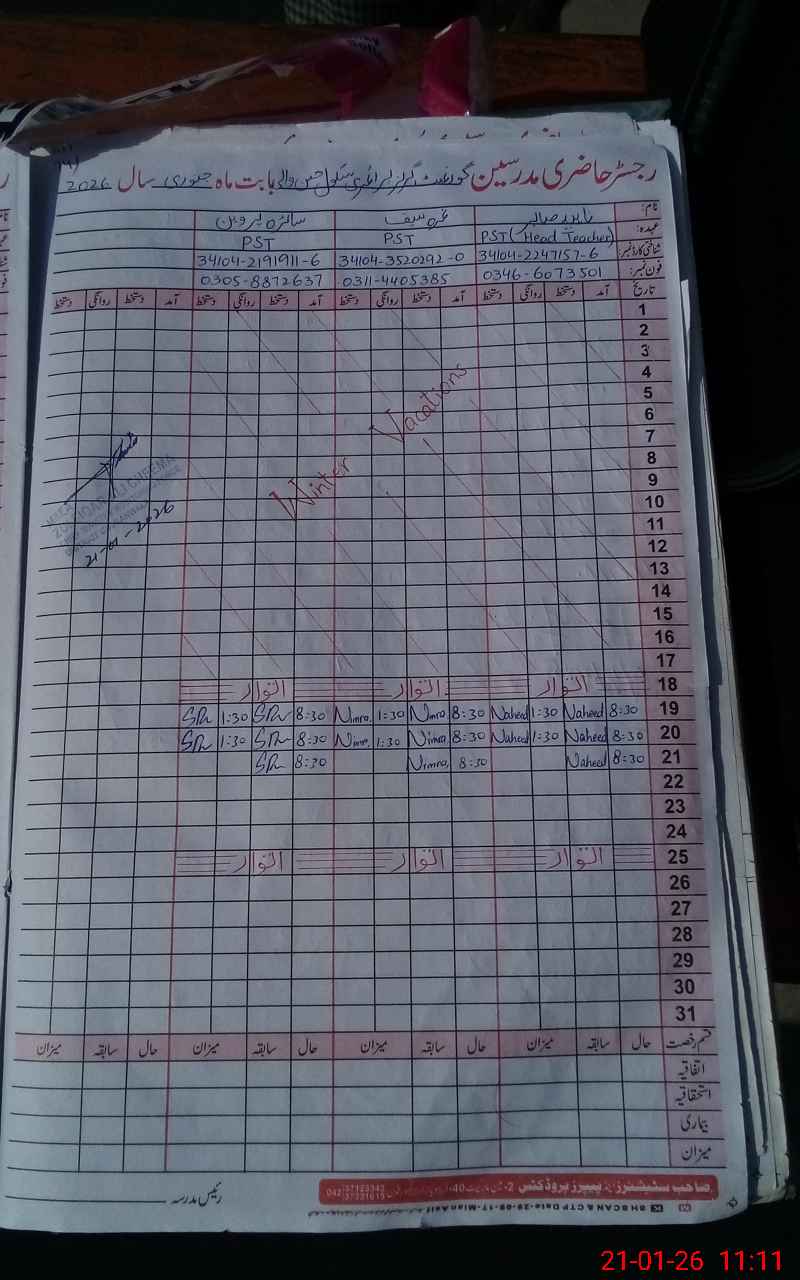 رجسٹر حاضری مدرسین گورنمنٹ گرلز پرائمری سکول جس والی بابت ماہ جنوری سال 2026
نام: ناہید صابر نمرہ سیف سائرہ پروین
عہدہ: PST (Head Teacher) PST PST
شناختی کارڈ نمبر: 34104-2247157-6 34104-3520292-0 34104-2191911-6
فون نمبر: 0346-6073501 0311-4405385 0305-8872637
تاریخ آمد دستخط روانگی دستخط آمد دستخط روانگی دستخط آمد دستخط روانگی دستخط آمد دستخط روانگی دستخط
1
2
3
4
5
6
7
8
9
10
11
12
13
14
15
16
17
Winter Vacations
ZULFIQAR ALI CHEEMA
21-01-2026
18 اتوار اتوار اتوار
19 8:30 Naheed 1:30 Naheed 8:30 Nimra 1:30 Nimra 8:30 SPr 1:30 SPr
20 8:30 Naheed 1:30 Naheed 8:30 Nimra 1:30 Nimra 8:30 SPr 1:30 SPr
21 8:30 Naheed 8:30 Nimra 8:30 SPr
22
23
24
25 اتوار اتوار اتوار
26
27
28
29
30
31
قسم رخصت حال سابقہ میزان حال سابقہ میزان حال سابقہ میزان حال سابقہ میزان
اتفاقیہ
استحقاقیہ
بیماری
میزان
صاحب سٹیشنرز اینڈ پیپرز پروڈکٹس
رئیس مدرسہ
21-01-26 11:11